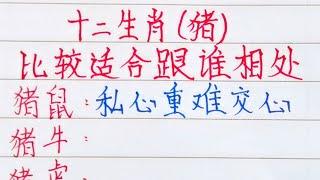 十二生肖(猪)
比较适合跟谁相处
猪鼠:私心重难交心
猪牛:
猪虎: